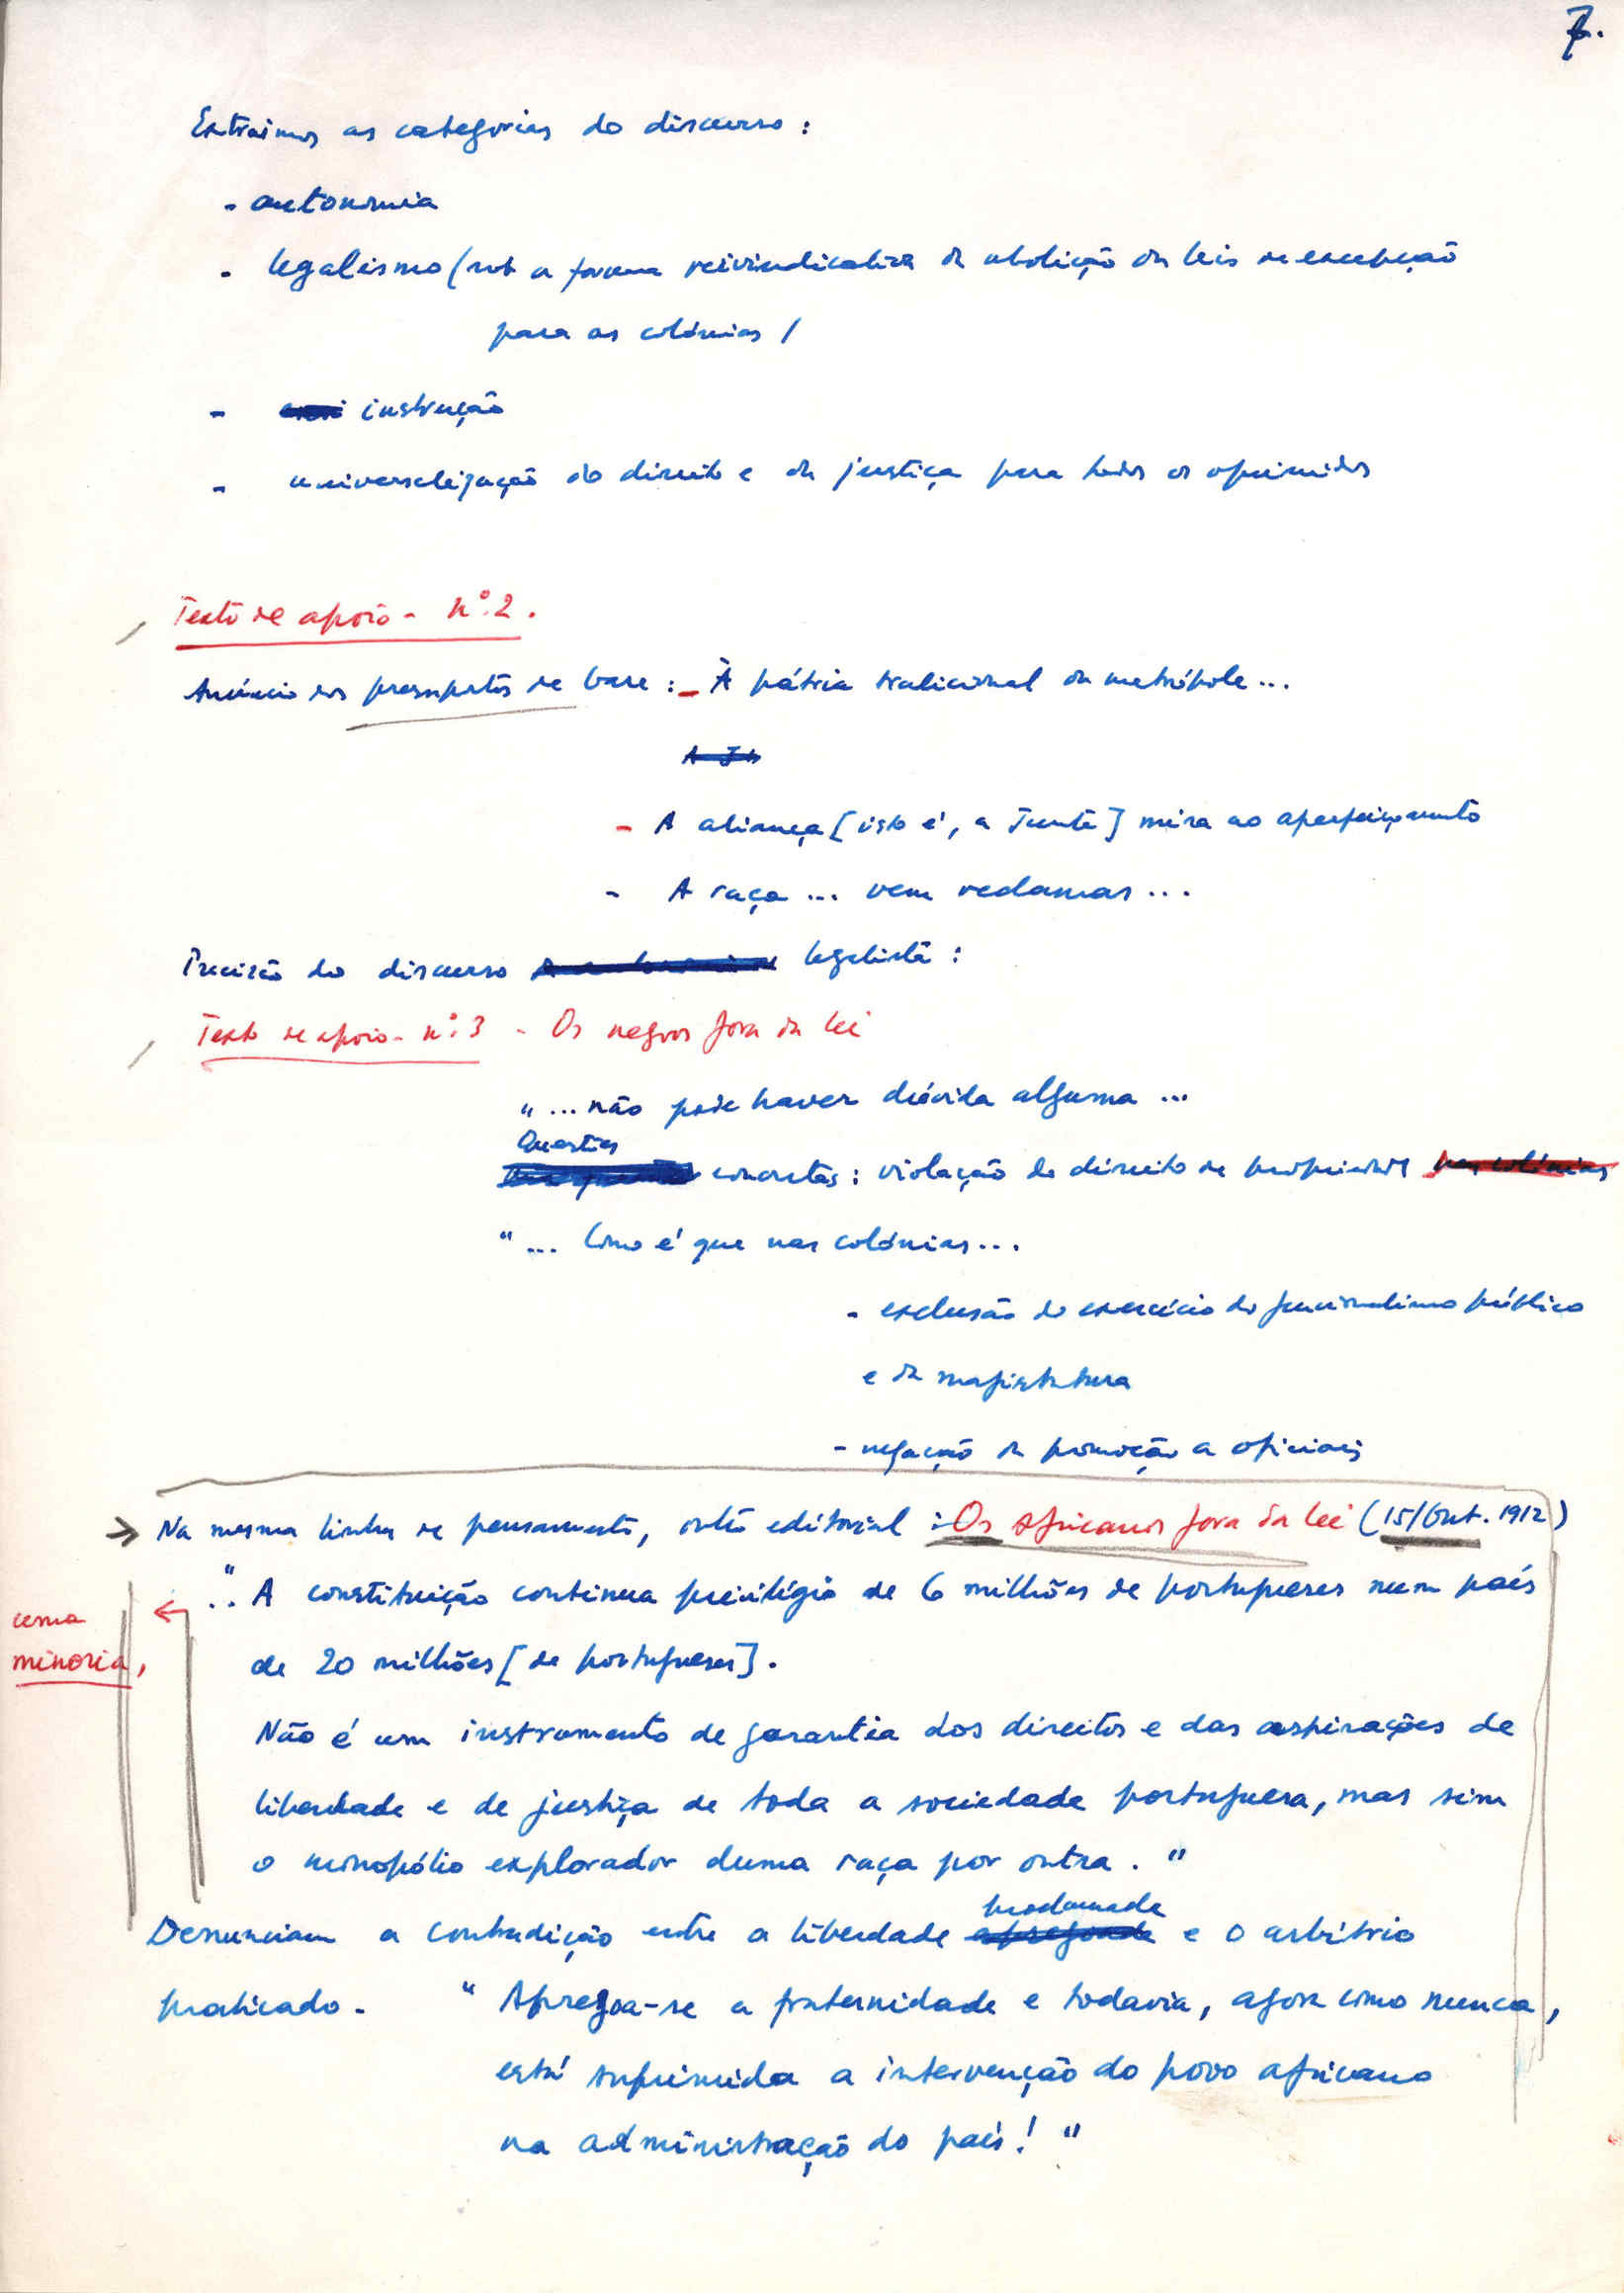 7.
Extraímos as categorias do discurso :
- autonomia
- legalismo (sob a forma reivindicativa da abolição das leis de excepção
para as colónias /
- instrução
- universalização do direito e da justiça para todos os oprimidos
Texto de apoio - nº. 2.
Anúncio dos pressupostos de base : - À pátria tradicional da metrópole...
A Ju
- A aliança [isto é, a Junta] mira ao aperfeiçoamento
- A raça ... vem reclamar ...
Precisão do discurso legalista :
Texto de apoio - nº. 3 - Os negros fora da lei
"... não pode haver dúvida alguma ...
Questões
concretas : violação do direito de propriedade nas colónias
"... Como é que nas colónias...
- exclusão do exercício do funcionalismo público
e da magistratura
- negação da promoção a oficiais
→ Na mesma linha de pensamento, outro editorial : Os Africanos fora da lei (15/Out. 1912)
".. A constituição continua privilégio de 6 milhões de portugueses num país
uma
minoria,
de 20 milhões [de portugueses].
Não é um instrumento de garantia dos direitos e das aspirações de
liberdade e de justiça de toda a sociedade portuguesa, mas sim
o monopólio explorador duma raça por outra. "
proclamada
Denunciam a contradição entre a liberdade apregoada e o arbítrio
praticado. " Apregoa-se a fraternidade e todavia, agora como nunca,
está suprimida a intervenção do povo africano
na administração do país! "